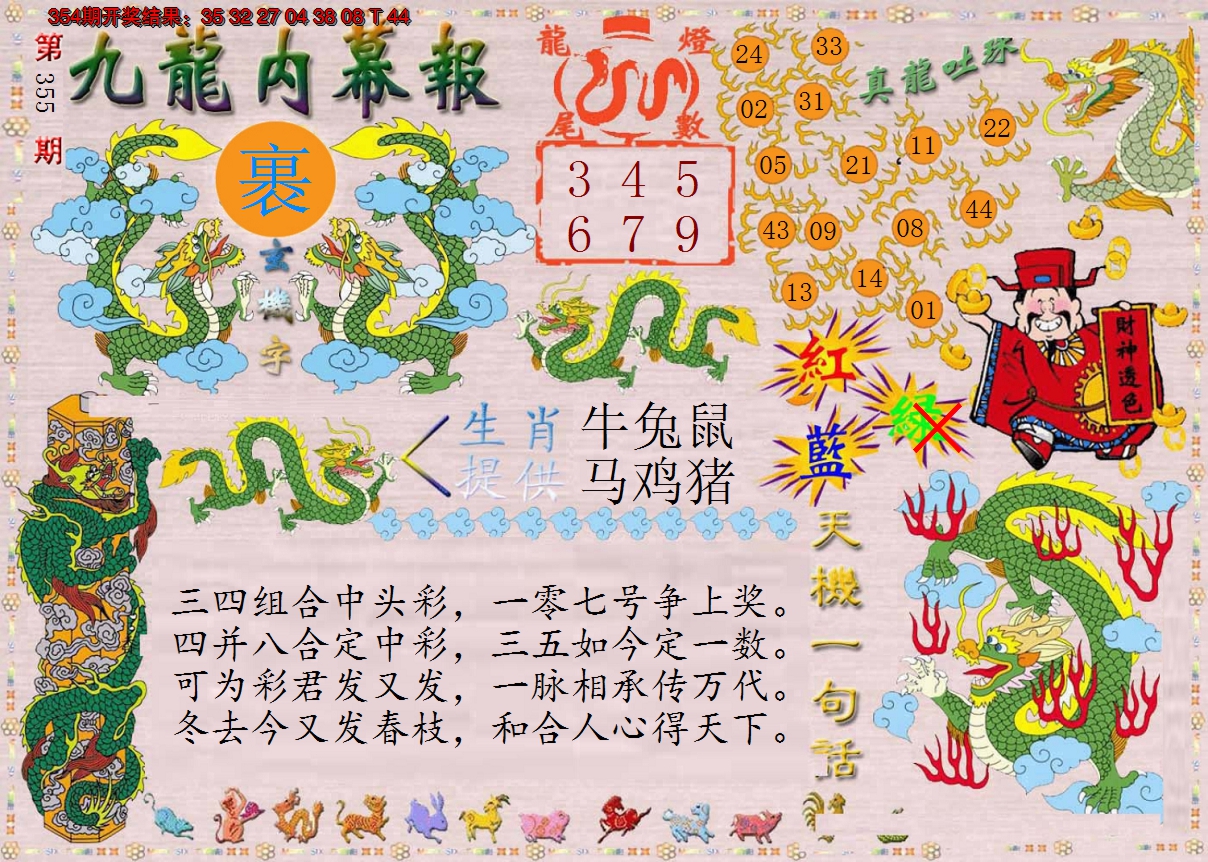 354期开奖结果：35 32 27 04 38 08 T 44
第355期
九龍内幕報
裹
玄機字
龍燈尾數
3 4 5
6 7 9
真龍吐珠
24 33
02 31
05 21 11 22
43 09 08 44
13 14 01
紅
綠
藍
財神透色
生肖提供
牛兔鼠
马鸡猪
三四组合中头彩，一零七号争上奖。
四并八合定中彩，三五如今定一数。
可为彩君发又发，一脉相承传万代。
冬去今又发春枝，和合人心得天下。
天機一句话